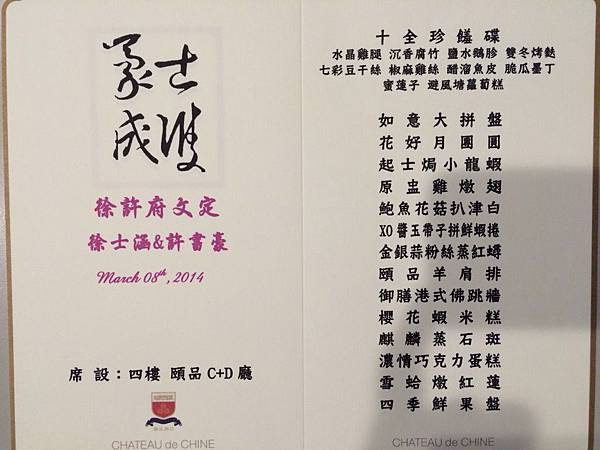 豪士
成雙
徐許府文定
徐士涵&許書豪
March 08th, 2014
席 設：四樓 頤品C+D廳
CHATEAU de CHINE
十全珍饈碟
水晶雞腿 沉香腐竹 鹽水鵝胗 雙冬烤麩
七彩豆干絲 椒麻雞絲 醋溜魚皮 脆瓜墨丁
蜜蓮子 避風塘蘿蔔糕
如意大拼盤
花好月團圓
起士焗小龍蝦
原盅雞燉翅
鮑魚花菇扒津白
XO醬玉帶子拼鮮蝦捲
金銀蒜粉絲蒸紅蟳
頤品羊肩排
御膳港式佛跳牆
櫻花蝦米糕
麒麟蒸石斑
濃情巧克力蛋糕
雪蛤燉紅蓮
四季鮮果盤
CHATEAU de CHINE